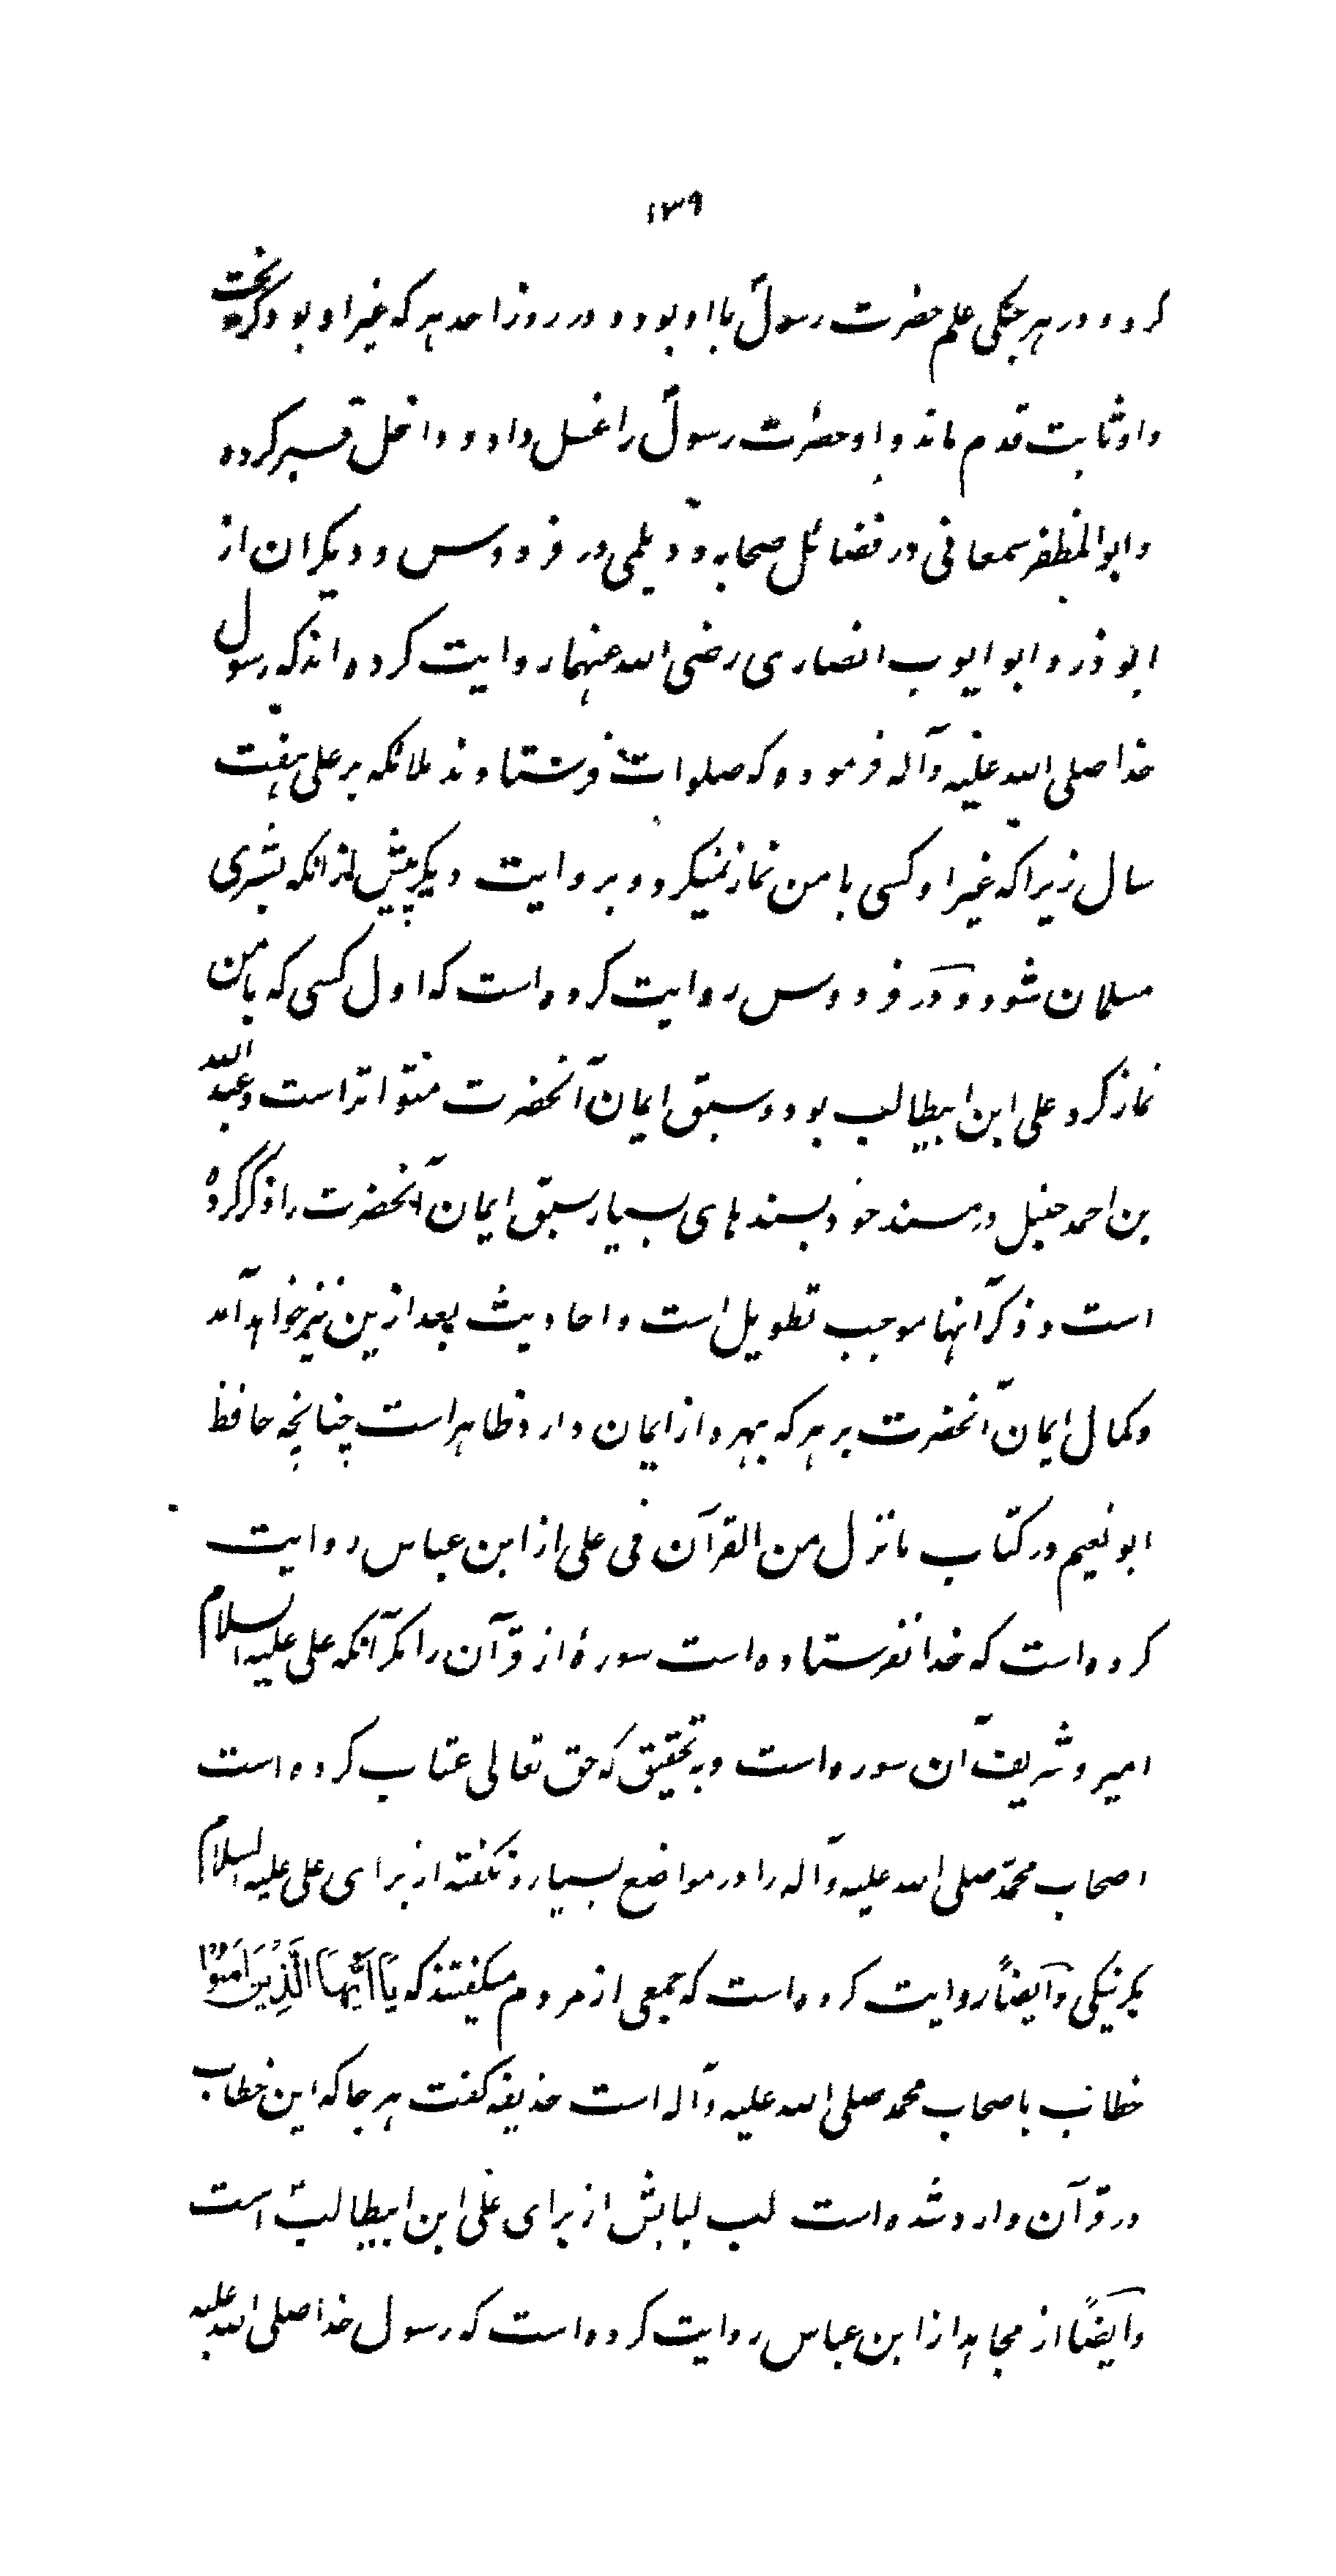 ۱۳۹
کرد و در هر جنکی علم حضرت رسولؐ با او بود و در روز احد هر که غیر او بود کریخت
و او ثابت قدم ماند و او حضرت رسولؐ را غسل داد و داخل قبر کرده
و ابوالمظفر سمعانی در فضائل صحابه و دیلمی در فردوس و دیکران از
ابوذر و ابو ایوب انصاری رضی الله عنهما روایت کرده اند که رسول
خدا صلی الله علیه وآله فرموده که صلوات فرستادند ملائکه بر علی هفت
سال زیرا که غیر او کسی با من نماز نمیکرد و بروایت دیکر پیش از انکه بشری
مسلمان شود و در فردوس روایت کرده است که اول کسی که با من
نماز کرد علی ابن ابیطالب بود و سبق ایمان آنحضرت متواتر است و عبد الله
بن احمد حنبل در مسند خود بسندهای بسیار سبق ایمان آنحضرت را ذکر کرده
است و ذکر آنها موجب تطویل است و احادیث بعد ازین نیز خواهد آمد
و کمال ایمان آنحضرت بر هر که بهره از ایمان دارد ظاهر است چنانچه حافظ
ابو نعیم در کتاب ما نزل من القرآن فی علی از ابن عباس روایت
کرده است که خدا نفرستاده است سورهٔ از قرآن را مکر آنکه علی علیه السلام
امیر و شریف آن سوره است و به تحقیق که حق تعالی عتاب کرده است
اصحاب محمّد صلی الله علیه وآله را در مواضع بسیار و نکفته از برای علی علیه السلام
مکر نیکی وایضاً روایت کرده است که جمعی از مردم میکفتند که یَا أَیُّهَا الَّذِینَ اٰمَنُوا
خطاب باصحاب محمد صلی الله علیه وآله است حذیفه کفت هر جا که این خطاب
در قرآن وارد شده است لب لبابش از برای علی ابن ابیطالبؑ است
وایضًا از مجاهد از ابن عباس روایت کرده است که رسول خدا صلی الله علیه